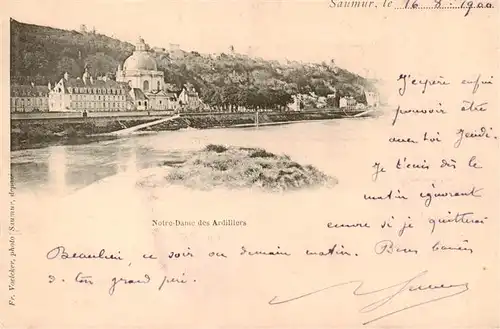 Saumur, le 16 8. 1900
J'espère enfin
pouvoir être
avec toi Jeudi.
Je t'écris dès le
matin ignorant
encore si je quitterai
Notre-Dame des Ardilliers
Beaulieu, ce soir ou demain matin. Bons baisers
à ton grand père.
Fr. Voelcker, photo (Saumur, déposé